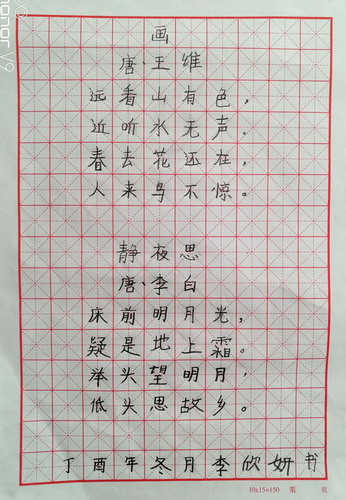 honor V9
画
唐、王维
远看山有色，
近听水无声。
春去花还在，
人来鸟不惊。
静夜思
唐、李白
床前明月光，
疑是地上霜。
举头望明月，
低头思故乡。
丁酉年冬月李欣妍书
10x15=150 第 张